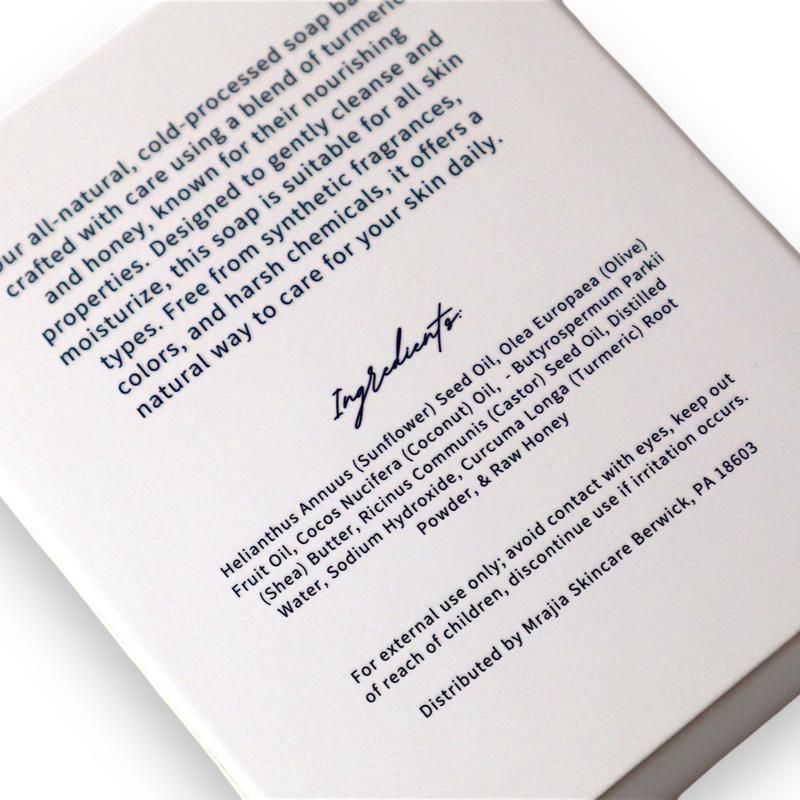 our all-natural, cold-processed soap
crafted with care using a blend of turmeric
and honey, known for their nourishing
properties. Designed to gently cleanse and
moisturize, this soap is suitable for all skin
types. Free from synthetic fragrances,
colors, and harsh chemicals, it offers a
natural way to care for your skin daily.
Ingredients:
Helianthus Annuus (Sunflower) Seed Oil, Olea Europaea (Olive)
Fruit Oil, Cocos Nucifera (Coconut) Oil, - Butyrospermum Parkii
(Shea) Butter, Ricinus Communis (Castor) Seed Oil, Distilled
Water, Sodium Hydroxide, Curcuma Longa (Turmeric) Root
Powder, & Raw Honey
For external use only; avoid contact with eyes, keep out
of reach of children, discontinue use if irritation occurs.
Distributed by Mrajia Skincare Berwick, PA 18603